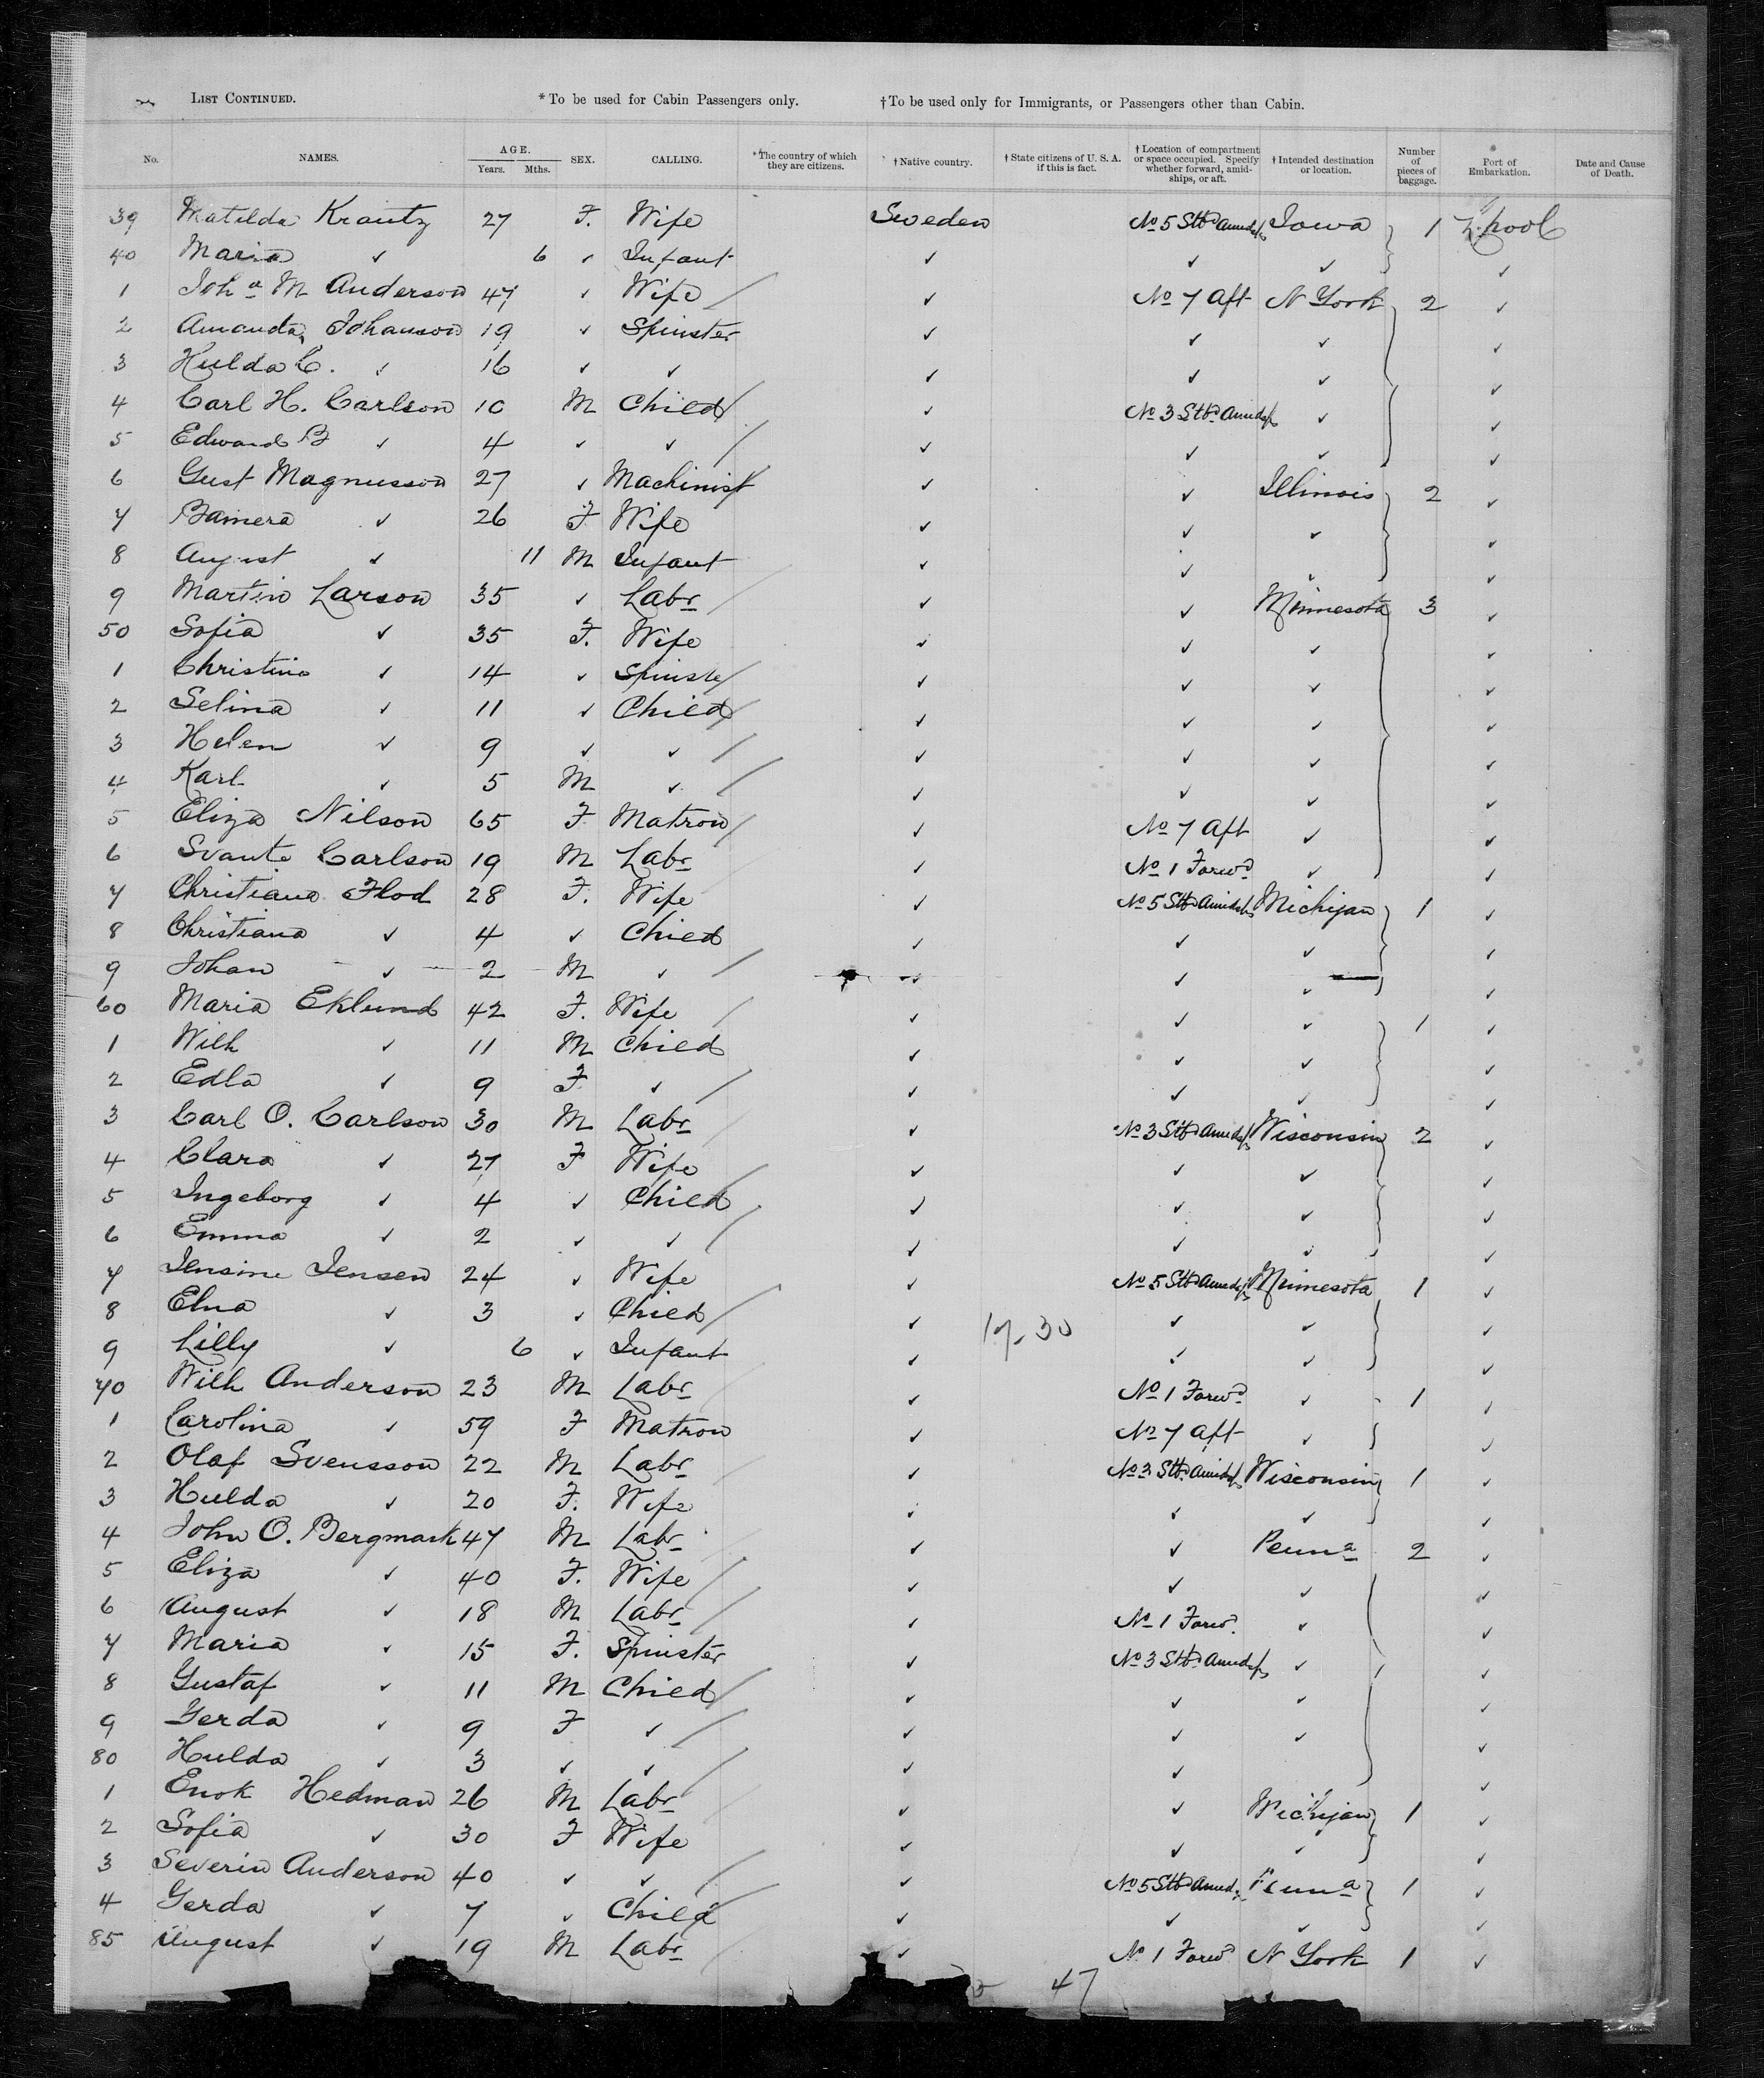 LIST CONTINUED. *To be used for Cabin Passengers only. †To be used only for Immigrants, or Passengers other than Cabin.
No. NAMES. AGE. Years. Mths. SEX. CALLING. *The country of which they are citizens. †Native country. †State citizens of U. S. A. if this is fact. †Location of compartment or space occupied. Specify whether forward, amidships, or aft. †Intended destination or location. Number of pieces of baggage. Port of Embarkation. Date and Cause of Death.
39 Matilda Krantz 27 F. Wife Sweden No 5 Stbd Amidsps Iowa 1 L.pool
40 Maria ✓ 6 ✓ Infant ✓ ✓ ✓ ✓
1 Joha M Anderson 47 ✓ Wife ✓ No 7 Aft N York 2 ✓
2 Amanda Johanson 19 ✓ Spinster ✓ ✓ ✓ ✓
3 Hulda C. ✓ 16 ✓ ✓ ✓ ✓ ✓ ✓
4 Carl H. Carlson 10 M Child ✓ No 3 Stbd Amidsps ✓ ✓
5 Edward B ✓ 4 ✓ ✓ ✓ ✓ ✓ ✓
6 Gust Magnusson 27 ✓ Machinist ✓ ✓ Illinois 2 ✓
7 ✓ 26 F Wife ✓ ✓ ✓ ✓
8 August ✓ 11 M Infant ✓ ✓ ✓ ✓
9 Martin Larson 35 ✓ Labr ✓ ✓ Minnesota 3 ✓
50 Sofia ✓ 35 F. Wife ✓ ✓ ✓ ✓
1 Christina ✓ 14 ✓ Spinster ✓ ✓ ✓ ✓
2 Selina ✓ 11 ✓ Child ✓ ✓ ✓ ✓
3 Helen ✓ 9 ✓ ✓ ✓ ✓ ✓ ✓
4 Karl ✓ 5 M ✓ ✓ ✓ ✓ ✓
5 Eliza Nilson 65 F Matron ✓ No 7 Aft ✓ ✓
6 Svante Carlson 19 M Labr ✓ No 1 Forwd ✓ ✓
7 Christiana Flod 28 F. Wife ✓ No 5 Stbd Amidsps Michijan 1 ✓
8 Christiana ✓ 4 ✓ Child ✓ ✓ ✓ ✓
9 Johan ✓ 2 M ✓ ✓ ✓ ✓ ✓
60 Maria Eklund 42 F. Wife ✓ ✓ ✓ 1 ✓
1 Wilh ✓ 11 M Child ✓ ✓ ✓ ✓
2 Edla ✓ 9 F ✓ ✓ ✓ ✓ ✓
3 Carl O. Carlson 30 M Labr ✓ No 3 Stbd Amidsps Wisconsin 2 ✓
4 Clara ✓ 27 F Wife ✓ ✓ ✓ ✓
5 Ingeborg ✓ 4 ✓ Child ✓ ✓ ✓ ✓
6 Emma ✓ 2 ✓ ✓ ✓ ✓ ✓ ✓
7 Jensine Jensen 24 ✓ Wife ✓ No 5 Stbd Amidsps Minnesota 1 ✓
8 Elna ✓ 3 ✓ Child ✓ ✓ ✓ ✓
9 Lilly ✓ 6 ✓ Infant ✓ ✓ ✓ ✓
70 Wilh Anderson 23 M Labr ✓ No 1 Forwd ✓ 1 ✓
1 Carolina ✓ 59 F Matron ✓ No 7 Aft ✓ ✓
2 Olaf Svensson 22 M Labr ✓ No 3 Stbd Amidsps Wisconsin 1 ✓
3 Hulda ✓ 20 F. Wife ✓ ✓ ✓ ✓
4 John O. Bergmark 47 M Labr ✓ ✓ Penna 2 ✓
5 Eliza ✓ 40 F. Wife ✓ ✓ ✓ ✓
6 August ✓ 18 M Labr ✓ No 1 Forwd. ✓ ✓
7 Maria ✓ 15 F. Spinster ✓ No 3 Stbd Amidsps ✓ ✓
8 Gustaf ✓ 11 M Child ✓ ✓ ✓ ✓
9 Gerda ✓ 9 F ✓ ✓ ✓ ✓ ✓
80 Hulda ✓ 3 ✓ ✓ ✓ ✓ ✓
1 Enok Hedman 26 M Labr ✓ ✓ Michijan 1 ✓
2 Sofia ✓ 30 F Wife ✓ ✓ ✓ ✓
3 Severin Anderson 40 ✓ ✓ ✓ No 5 Stbd Amid Penna 1 ✓
4 Gerda ✓ 7 ✓ Child ✓ ✓ ✓ ✓
85 August ✓ 19 M Labr ✓ No 1 Forwd N York 1 ✓
47